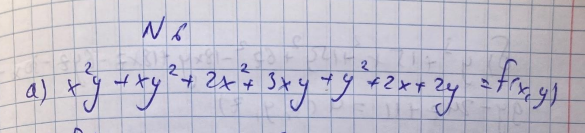 N 6
a) x²y + xy² + 2x² + 3xy + y² + 2x + 2y = f(x, y)